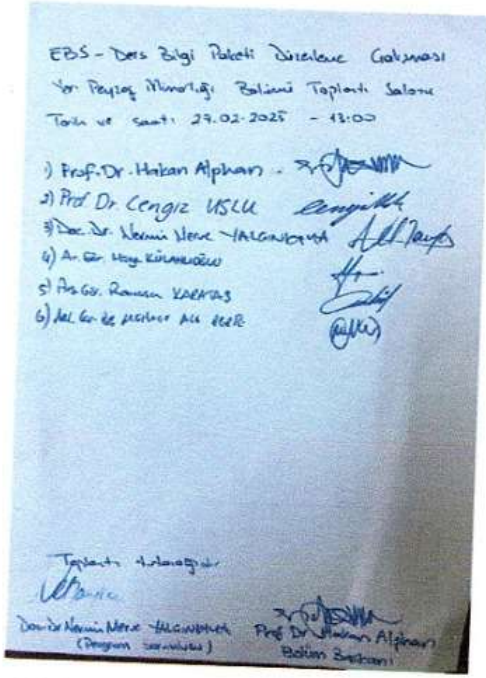 EBS - Ders Bilgi Paketi Düzenleme Çalışması
Yer: Peyzaj Mimarlığı Bölümü Toplantı Salonu
Tarih ve saati: 27.02.2025 - 13:00
1) Prof. Dr. Hakan Alphan
2) Prof Dr. Cengiz USLU
3) Doc. Dr. Nermin Merve YALÇINKAYA
4) Ar. Gör.
5) Arş. Gör. KARATAŞ
6)
Toplantı tutanağıdır
Doc. Dr. Nermin Merve YALÇINKAYA
(Program sorumlusu)
Prof Dr. Hakan Alphan
Bölüm Başkanı